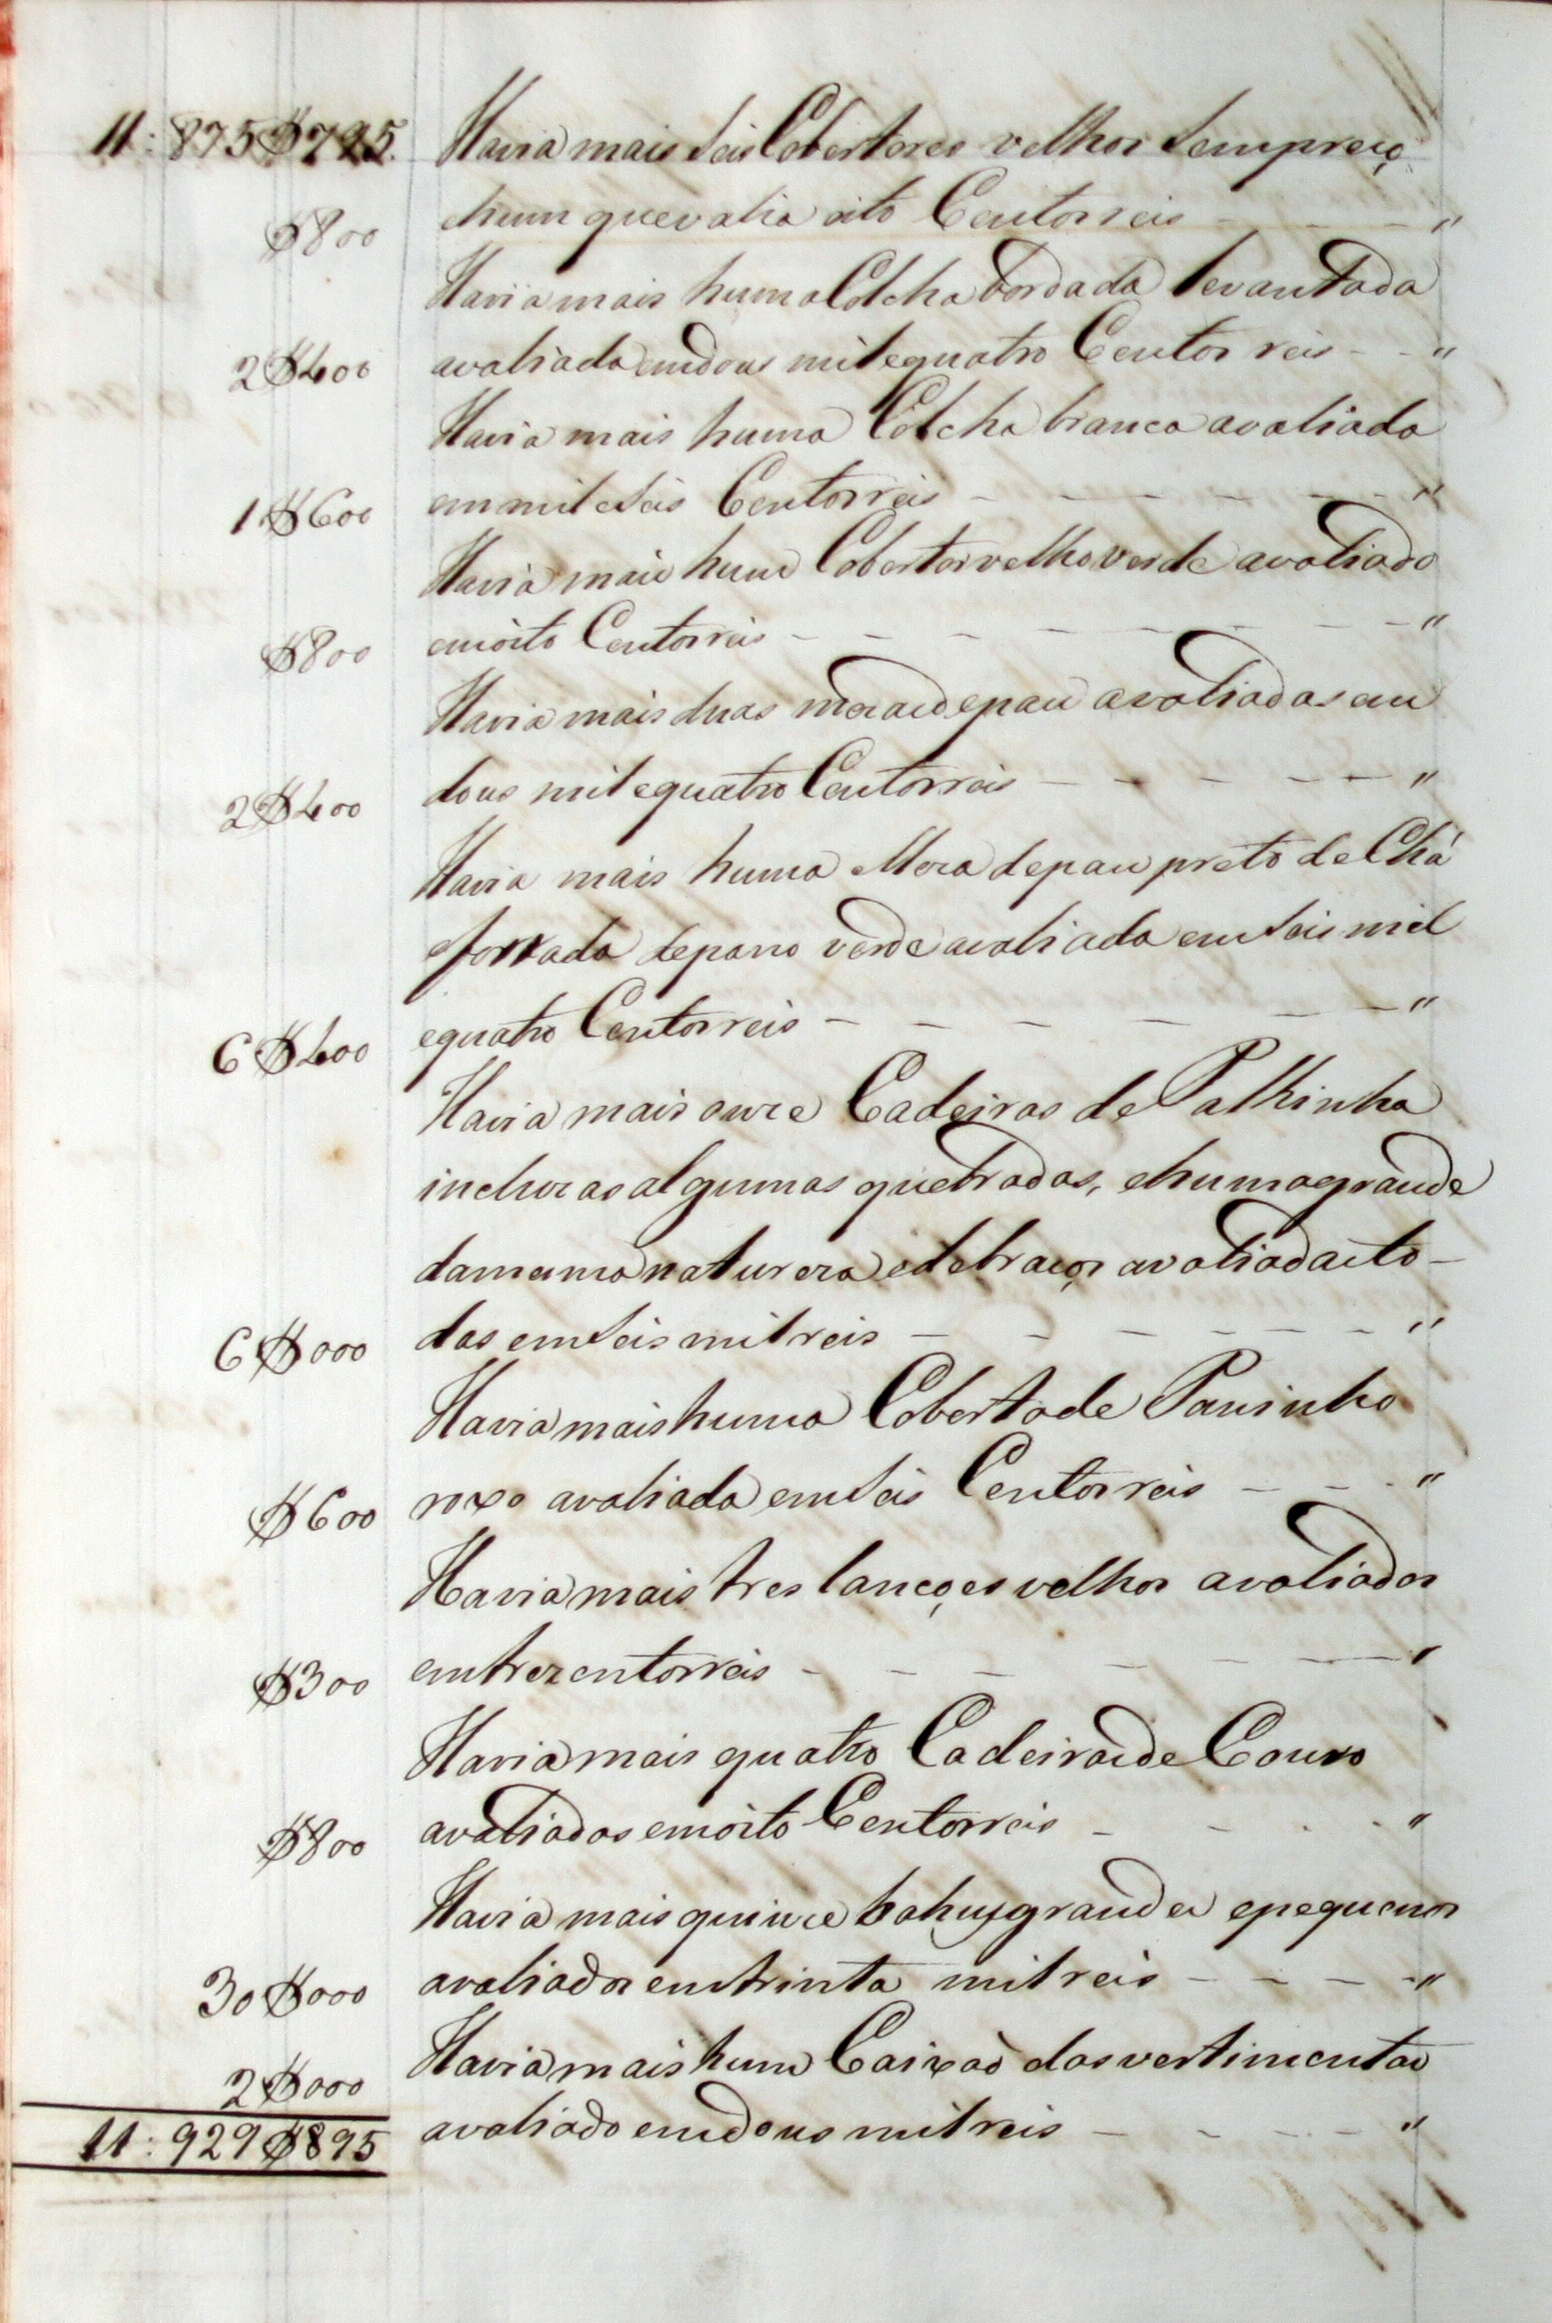 11:875$795. Havia mais seis Cobertores velhos sem preço
$800 ehum quevalia oito Centos reis - - - "
Havia mais huma Colcha bordada levantada
2$400 avaliada emdous mil equatro Centos reis - - "
Havia mais huma Colcha branca avaliada
1$600 em mil eseis Centos reis - - - - - "
Havia mais hum Cobertor velho verde avaliado
$800 emoito Centos reis - - - - - - - "
Havia mais duas mezas depau avaliadas em
2$400 dous mil equatro Centos reis - - - - - "
Havia mais huma Meza depau preto de Chá
eforrada depano verde avaliada em seis mil
6$400 equatro Centos reis - - - - - - "
Havia mais onze Cadeiras de Palhinha
incluzas algumas quebradas, ehuma grande
damesma natureza edebraços avaliadas to-
6$000 das em seis mil reis - - - - - - "
Havia mais huma Coberta de Paninho
$600 roxo avaliada em seis Centos reis - - - "
Havia mais tres lançoes velhos avaliados
$300 emtrezentos reis - - - - - - "
Havia mais quatro Cadeiras de Couro
$800 avaliadas emoito Centos reis - - - - "
Havia mais quinze bahus grandes epequenos
30$000 avaliados emtrinta mil reis - - - - "
Havia mais hum Caixaõ das vestimentas
2$000
11:929$895 avaliado emdous mil reis - - - - - "